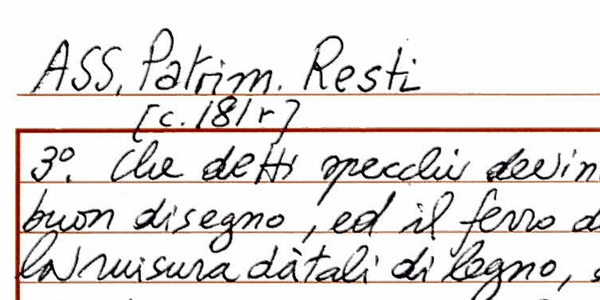 ASS, Patrim. Resti
[c. 181r]
3°. Che detti specchi devin
buon disegno, ed il ferro d
la misura da tali di legno,